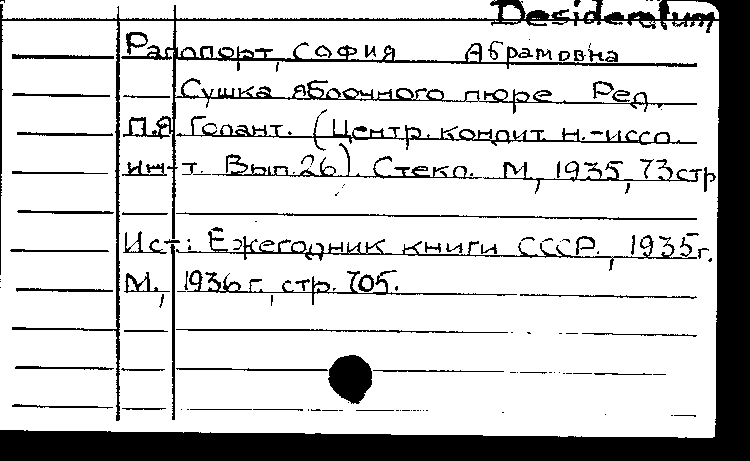 Desideratum
Рапопорт, София Абрамовна
Сушка яблочного пюре. Ред.
П.Я. Голант. (Центр. кондит. н.-иссл.
ин-т. Вып.26). Стекл. М., 1935, 73стр
Ист.: Ежегодник книги СССР., 1935г.
М., 1936г., стр. 705.